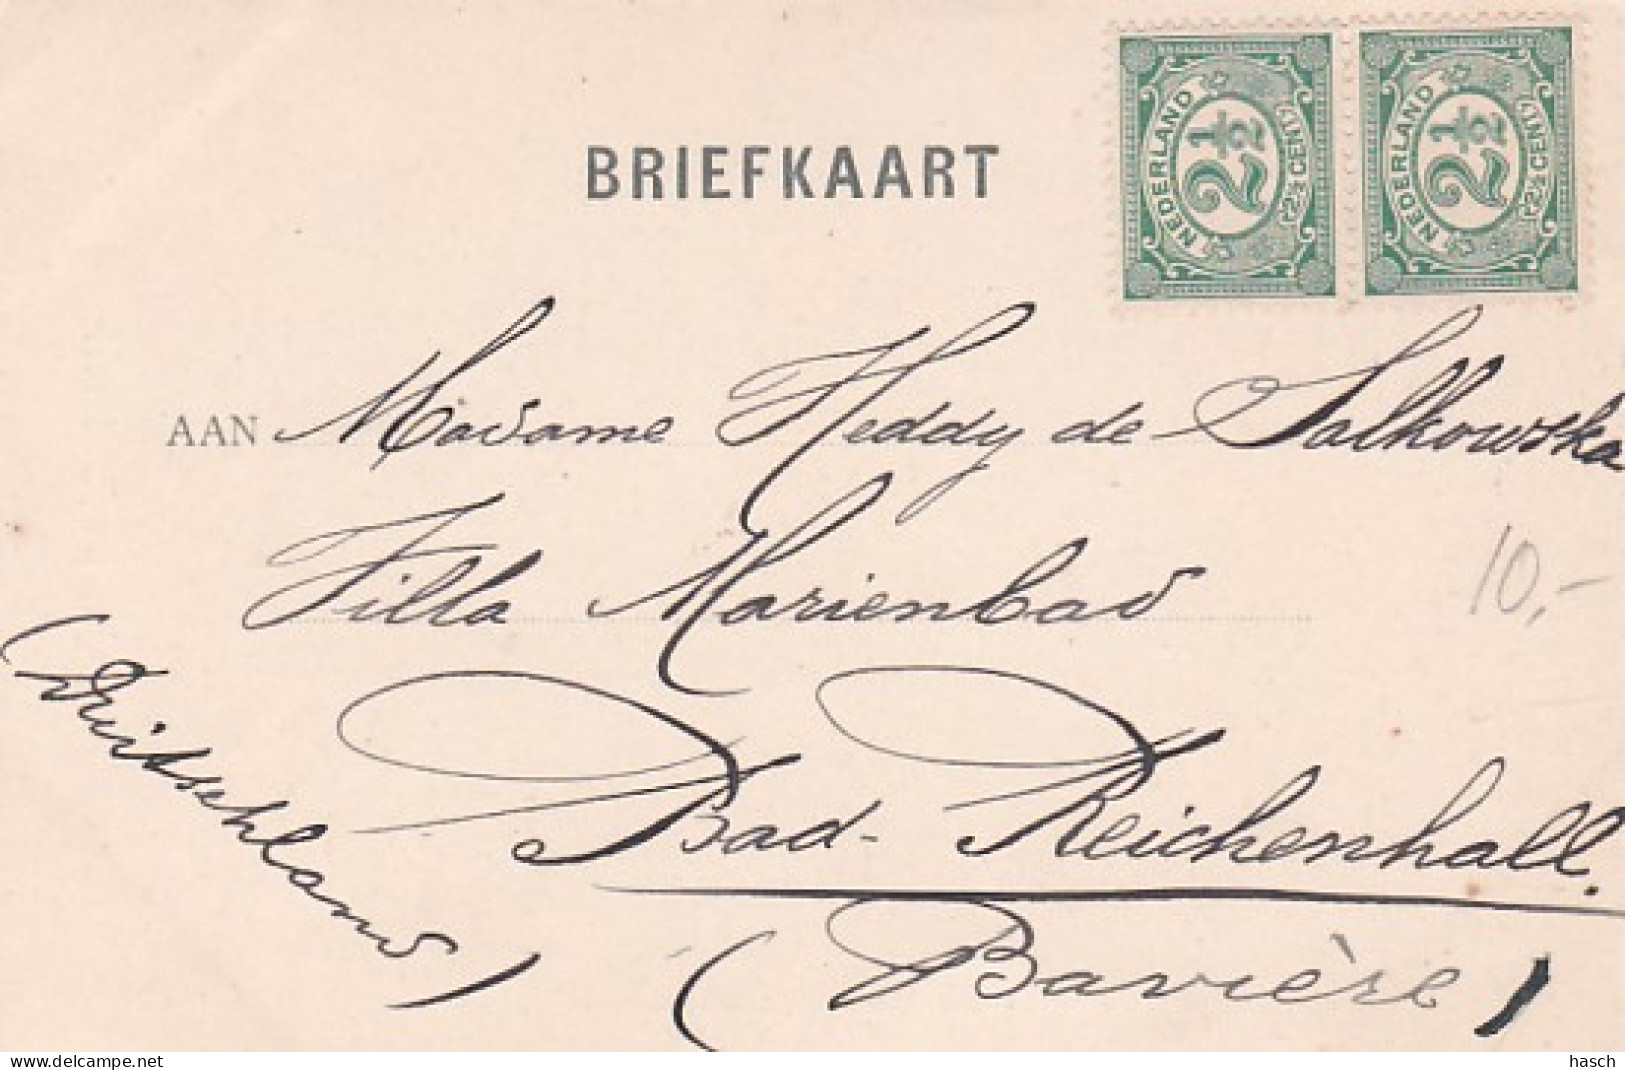 BRIEFKAART
NEDERLAND 2½ (2½ CENT)
NEDERLAND 2½ (2½ CENT)
AAN Madame Heddy de Salkowska
Villa Marienbad
10,-
Bad-Reichenhall.
(Duitschland)
(Bavière)
www.delcampe.net
hasch